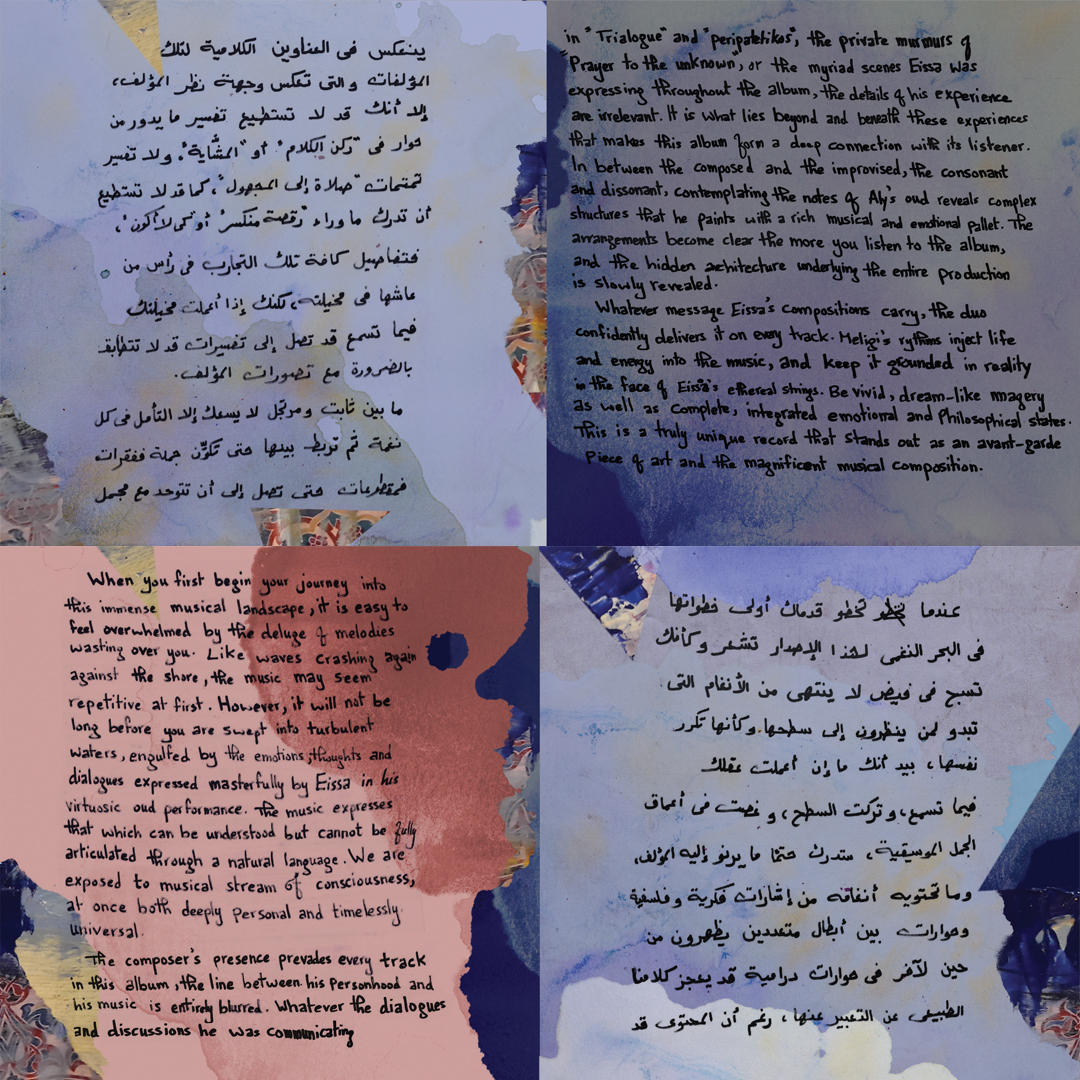 ينعكس فى العناوين الكلامية لتلك
المؤلفات والتى تعكس وجهة نظر المؤلف،
إلا أنك قد لا تستطيع تفسير ما يدور من
حوار فى "ركن الكلام" أو "المشَّاية"، ولا تفسير
تمتمات "صلاة إلى المجهول"، كما قد لا تستطيع
أن تدرك ما وراء "رقصة منكسر" أو "كى لا أكون"،
فتفاصيل كافة تلك التجارب فى رأس من
عاشها فى مخيلته، لكنك إذا أعملت مخيلتك
فيما تسمع قد تصل إلى تفسيرات قد لا تتطابق
بالضرورة مع تصورات المؤلف.
ما بين ثابت ومرتجل لا يسعك إلا التأمل فى كل
نغمة ثم تربط بينها حتى تكوِّن جملة ففقرات
فمقطوعات حتى تصل إلى أن تتوحد مع مجمل
in "Trialogue" and "peripatetikos", the private murmurs of
"Prayer to the unknown", or the myriad scenes Eissa was
expressing throughout the album, the details of his experience
are irrelevant. It is what lies beyond and beneath these experiences
that makes this album form a deep connection with its listener.
In between the composed and the improvised, the consonant
and dissonant, contemplating the notes of Aly's oud reveals complex
structures that he paints with a rich musical and emotional pallet. The
arrangements become clear the more you listen to the album,
and the hidden architecture underlying the entire production
is slowly revealed.
Whatever message Eissa's compositions carry, the duo
confidently delivers it on every track. Meligi's rythms inject life
and energy into the music, and keep it grounded in reality
in the face of Eissa's ethereal strings. Be vivid, dream-like imagery
as well as complete, integrated emotional and Philosophical states.
This is a truly unique record that stands out as an avant-garde
Piece of art and the magnificent musical composition.
When you first begin your journey into
this immense musical landscape, it is easy to
feel overwhelmed by the deluge of melodies
wasting over you. Like waves crashing again
against the shore, the music may seem
repetitive at first. However, it will not be
long before you are swept into turbulent
waters, engulfed by the emotions, thoughts and
dialogues expressed masterfully by Eissa in his
virtuosic oud performance. The music expresses
that which can be understood but cannot be fully
articulated through a natural language. We are
exposed to musical stream of consciousness,
at once both deeply personal and timelessly
universal.
The composer's presence prevades every track
in this album, the line between his Personhood and
his music is entirely blurred. Whatever the dialogues
and discussions he was communicating
عندما تخطو قدماك أولى خطواتها
فى البحر النغمى لهذا الإصدار تشعر وكأنك
تسبح فى فيض لا ينتهى من الأنغام التى
تبدو لمن ينظرون إلى سطحها وكأنها تكرر
نفسها، بيد أنك ما إن أعملت عقلك
فيما تسمع، وتركت السطح، وغصت فى أعماق
الجمل الموسيقية، ستدرك حتمًا ما يرنو إليه المؤلف،
وما تحتويه أنغامه من إشارات فكرية وفلسفية
وحوارات بين أبطال متعددين يظهرون من
حين لآخر فى حوارات درامية قد يعجز كلامنا
الطبيعى عن التعبير عنها، رغم أن المحتوى قد